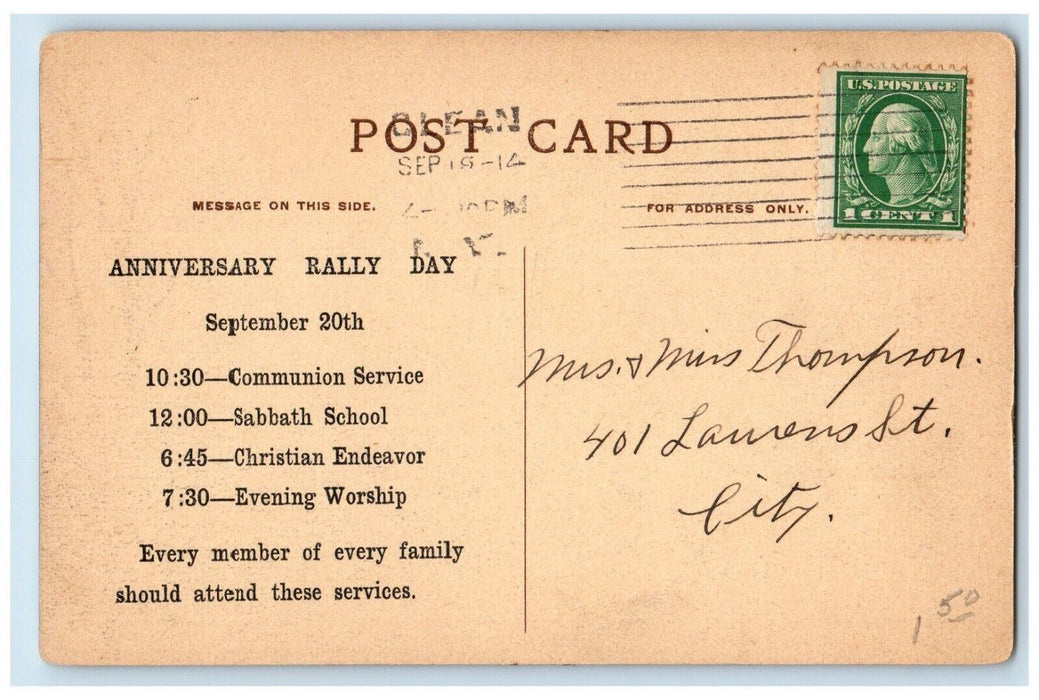 POST CARD
OLEAN
SEP 18-14
MESSAGE ON THIS SIDE.
FOR ADDRESS ONLY.
U.S. POSTAGE
1 CENT 1
ANNIVERSARY RALLY DAY
September 20th
10:30—Communion Service
12:00—Sabbath School
6:45—Christian Endeavor
7:30—Evening Worship
Every member of every family
should attend these services.
Mrs. & Miss Thompson.
401 Laurens St.
City.
1 50